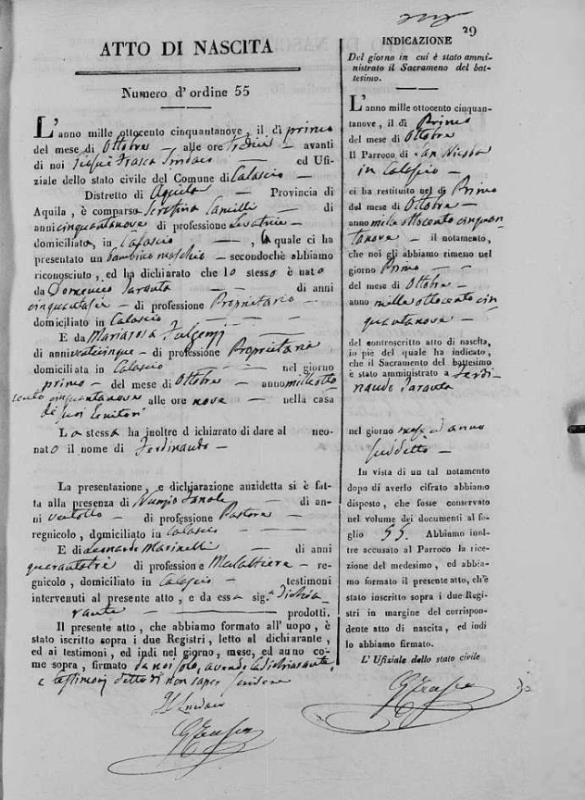 39
ATTO DI NASCITA
Numero d'ordine 55
L'anno mille ottocento cinquantanove, il dì primo
del mese di Ottobre — alle ore tredici — avanti
di noi Frasca Sindaco ed Ufi-
ziale dello stato civile del Comune di Calascio —
Distretto di Aquila — Provincia di
Aquila, è comparsa Serafina Camilli — di
anni cinquantanove di professione Levatrice —
domiciliata, in Calascio — —, la quale ci ha
presentato un bambino maschio — secondochè abbiamo
riconosciuto, ed ha dichiarato che lo stesso è nato
da Domenico Taranta — di anni
— di professione Proprietario —
domiciliato in Calascio — —
E da Mariarosa Fulgenzi —
di anni venticinque — di professione Proprietaria
domiciliata in Calascio — — nel giorno
primo — del mese di Ottobre — anno milleotto
cento cinquantanove alle ore nove — nella casa
de' suoi Genitori
La stessa ha inoltre dichiarato di dare al neo-
nato il nome di Ferdinando —
La presentazione, e dichiarazione anzidetta si è fat-
ta alla presenza di Nunzio — di an-
ni ventotto — di professione Pastore —
regnicolo, domiciliato in Calascio —
E di Leonardo Marinelli — di anni
quarantatrè di professione Mulattiere — re-
gnicolo, domiciliato in Calascio — testimoni
intervenuti al presente atto, e da essa sig.ª dichia
rante — — prodotti.
Il presente atto, che abbiamo formato all'uopo, è
stato iscritto sopra i due Registri, letto al dichiarante,
ed ai testimoni, ed indi nel giorno, mese, ed anno co-
me sopra, firmato da noi solo, avendo la dichiarante,
e testimonj detto di non saper scrivere
Il Sindaco
GFrasca
INDICAZIONE
Del giorno in cui è stato ammi-
nistrato il Sacrameno del bat-
tesimo.
L'anno mille ottocento cinquan-
tanove, il dì Primo
del mese di Ottobre
Il Parroco di San Nicola
in Calascio —
ci ha restituito nel dì Primo
dal mese di Ottobre —
anno mille ottocento cinquan
tanove — il notamento,
che noi gli abbiamo rimesso nel
giorno Primo —
del mese di Ottobre
anno mille ottocento cin
quantanove —
del controscritto atto di nascita,
in piè del quale ha indicato,
che il Sacramento del battesimo
è stato amministrato a Ferdi
nando Taranta
nel giorno mese ed anno
suddetto —
In vista di un tal notamento
dopo di averlo cifrato abbiamo
disposto, che fosse conservato
nel volume dei documenti al fo-
glio 55. Abbiamo inol-
tre accusato al Parroco la rice-
zione del medesimo, ed abbia-
mo formato il presente atto, ch'è
stato inscritto sopra i due Regi-
stri in margine del corrispon-
dente atto di nascita, ed indi
lo abbiamo firmato.
L' Ufiziale dello stato civile
GFrasca